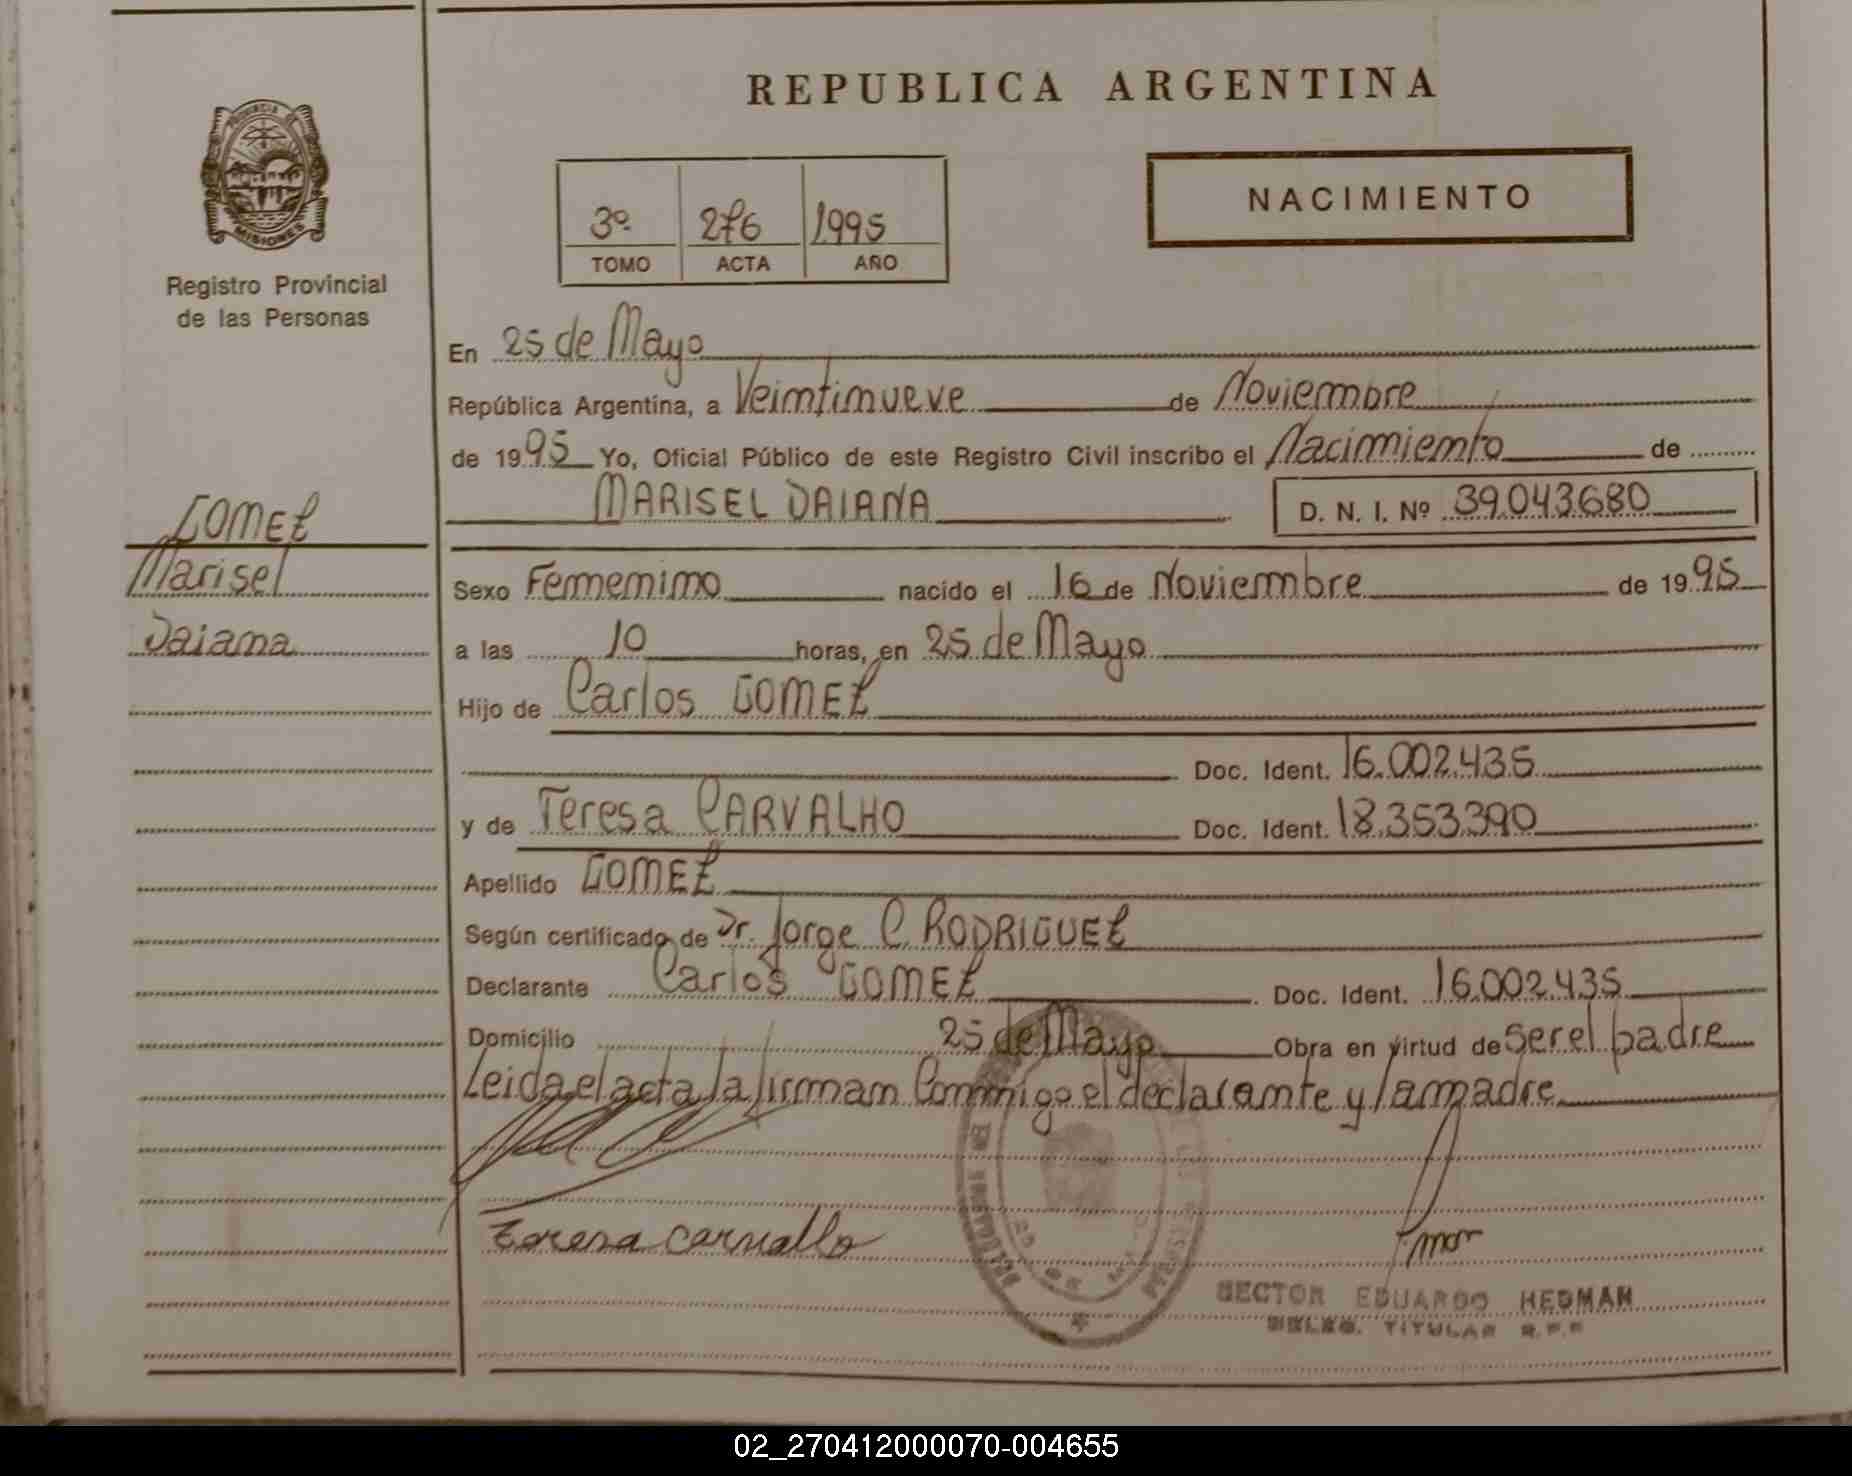 REPUBLICA ARGENTINA
PROVINCIA DE
MISIONES
Registro Provincial
de las Personas
NACIMIENTO
3º 276 1995
TOMO ACTA AÑO
En 25 de Mayo
República Argentina, a Veintinueve de Noviembre
de 1995 Yo, Oficial Público de este Registro Civil inscribo el Nacimiento de
MARISEL DAIANA D. N. I. Nº 39.043.680
GOMEZ
Marisel
Daiana
Sexo Femenino nacido el 16 de Noviembre de 1995
a las 10 horas, en 25 de Mayo
Hijo de Carlos GOMEZ
Doc. Ident. 16.002.435
y de Teresa CARVALHO Doc. Ident. 18.353.390
Apellido GOMEZ
Según certificado de Dr. Jorge C. RODRIGUEZ
Declarante Carlos GOMEZ Doc. Ident. 16.002.435
Domicilio 25 de Mayo Obra en virtud de ser el padre
Leida el acta la firman Conmigo el declarante y la madre
Teresa Carvallo
HECTOR EDUARDO HEDMAN
DELEG. TITULAR R.P.P.
02_270412000070-004655